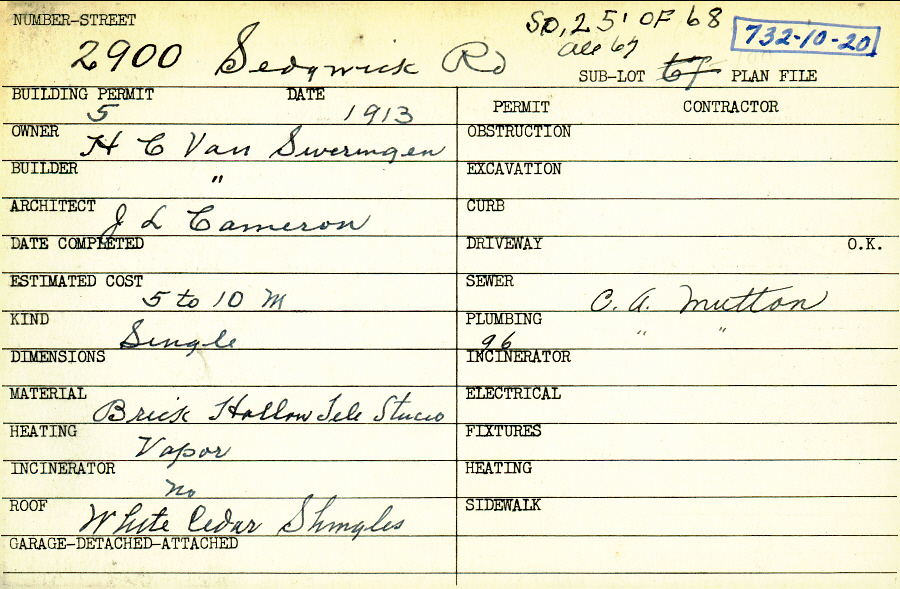 NUMBER-STREET
So, 25' OF 68
2900 Sedgwick Rd
all 67
732-10-20
SUB-LOT 67 PLAN FILE
BUILDING PERMIT DATE
5 1913
PERMIT CONTRACTOR
OWNER H C Van Sweringen
OBSTRUCTION
BUILDER "
EXCAVATION
ARCHITECT J L Cameron
CURB
DATE COMPLETED
DRIVEWAY O.K.
ESTIMATED COST 5 to 10 M
SEWER C. A. Mutton
KIND Single
PLUMBING 96 " "
DIMENSIONS
INCINERATOR
MATERIAL Brick Hollow Tile Stucco
ELECTRICAL
HEATING Vapor
FIXTURES
INCINERATOR no
HEATING
ROOF White Cedar Shingles
SIDEWALK
GARAGE-DETACHED-ATTACHED